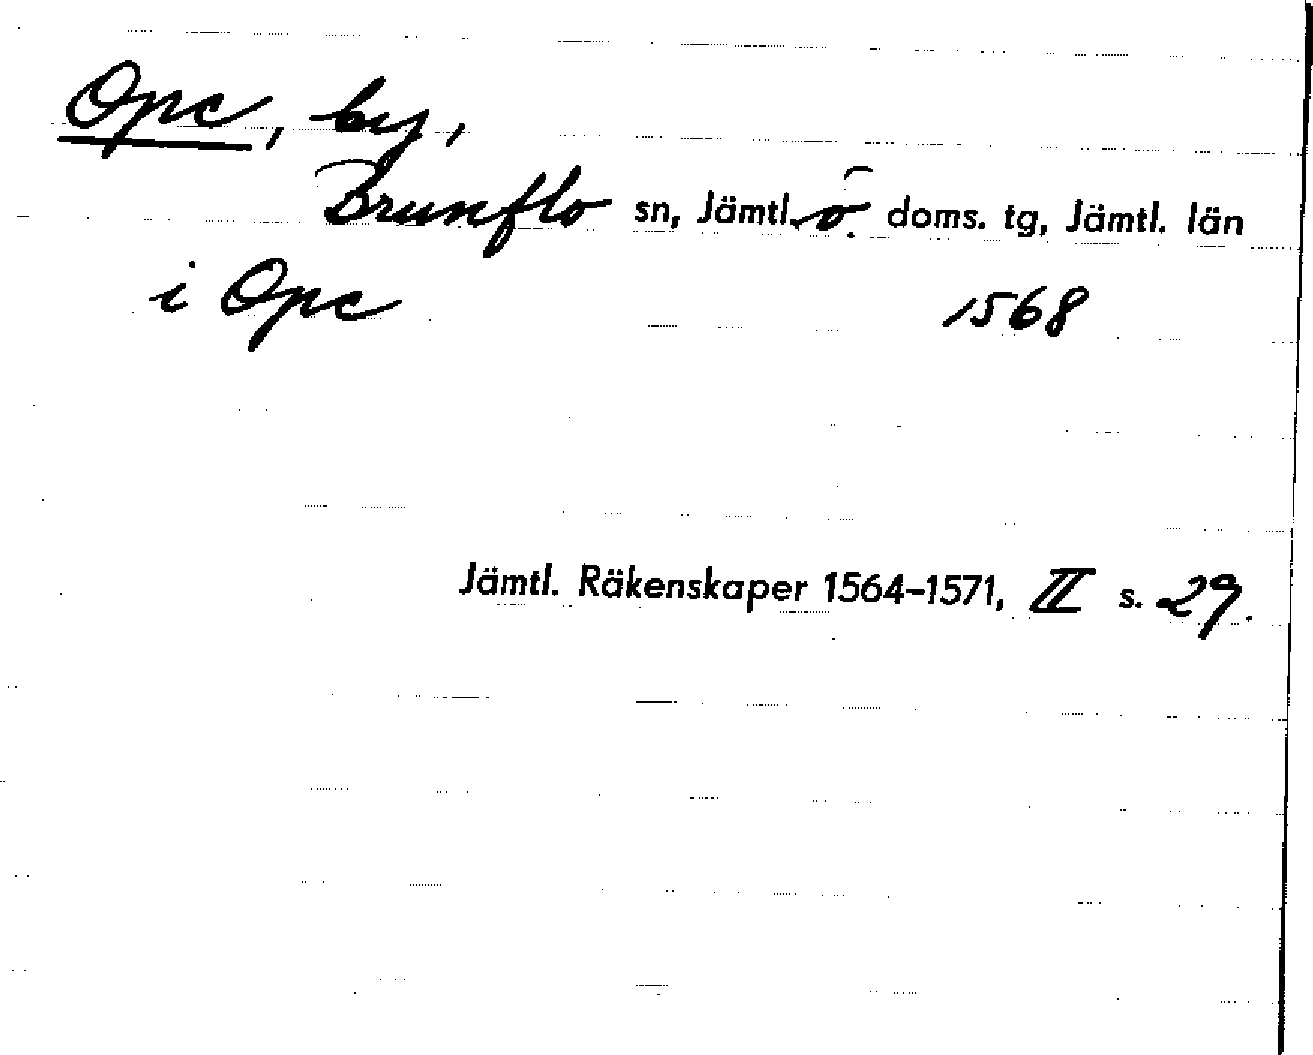 Ope, by,
Brunflo sn, Jämtl. ö. doms. tg, Jämtl. län
i Ope 1568
Jämtl. Räkenskaper 1564–1571, II s. 29.